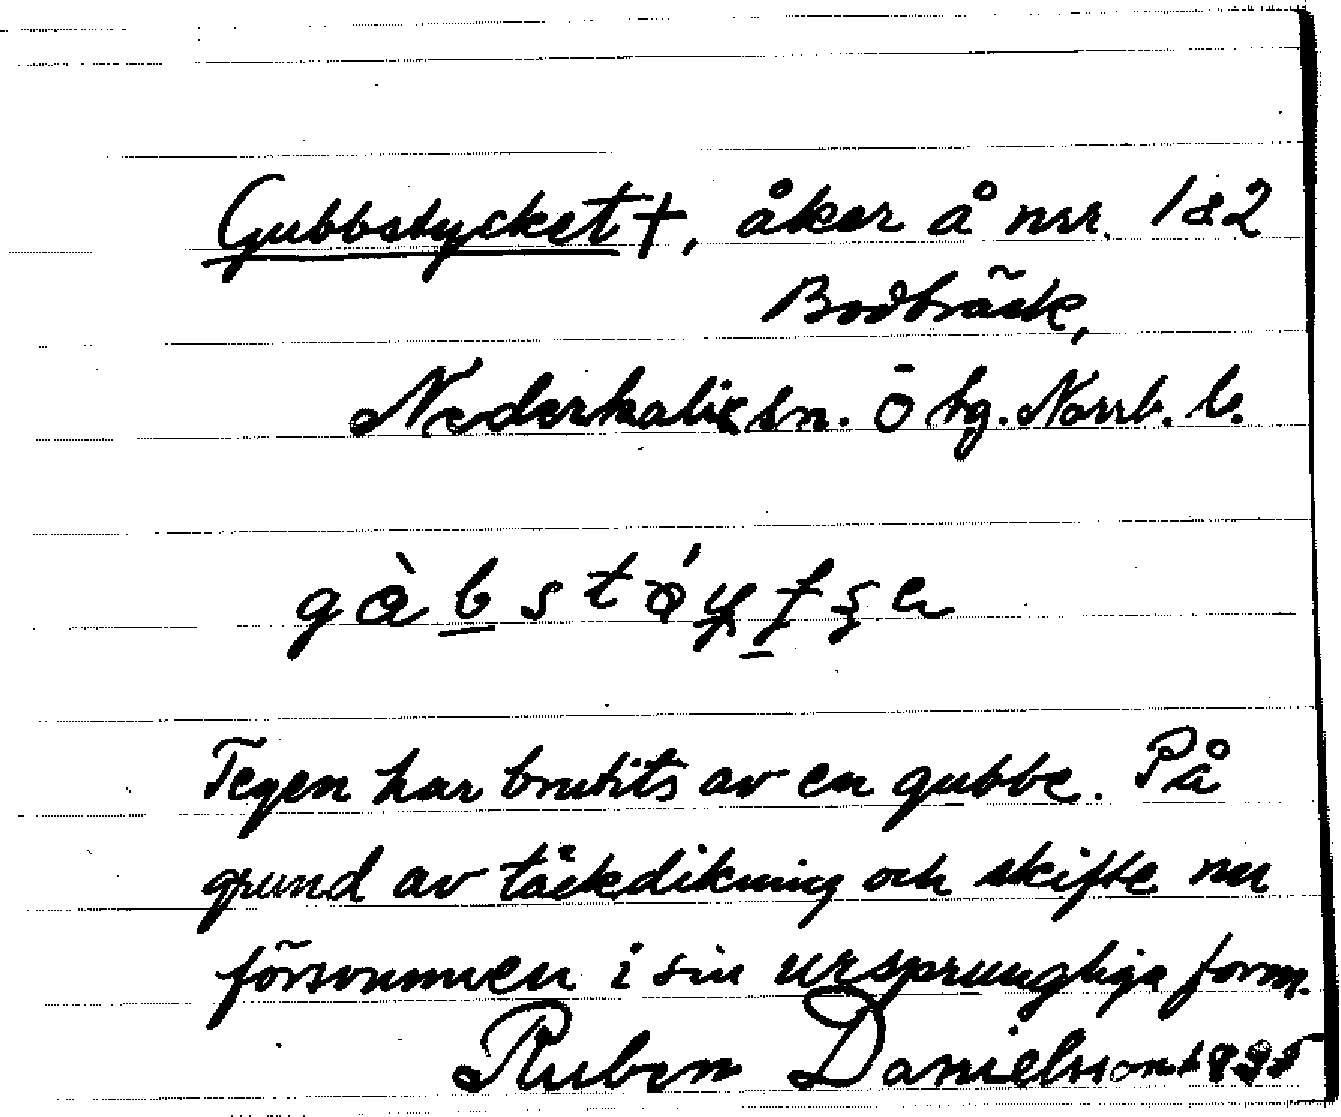 Gubbstycket †, åker å nr. 1 & 2
Bodträsk,
Nederkalix sn. Ö bg. Norrb. l.
Tegen har brutits av en gubbe. På
grund av täckdikning och skifte nu
försvunnen i sin ursprungliga form.
Ruben Danielsson